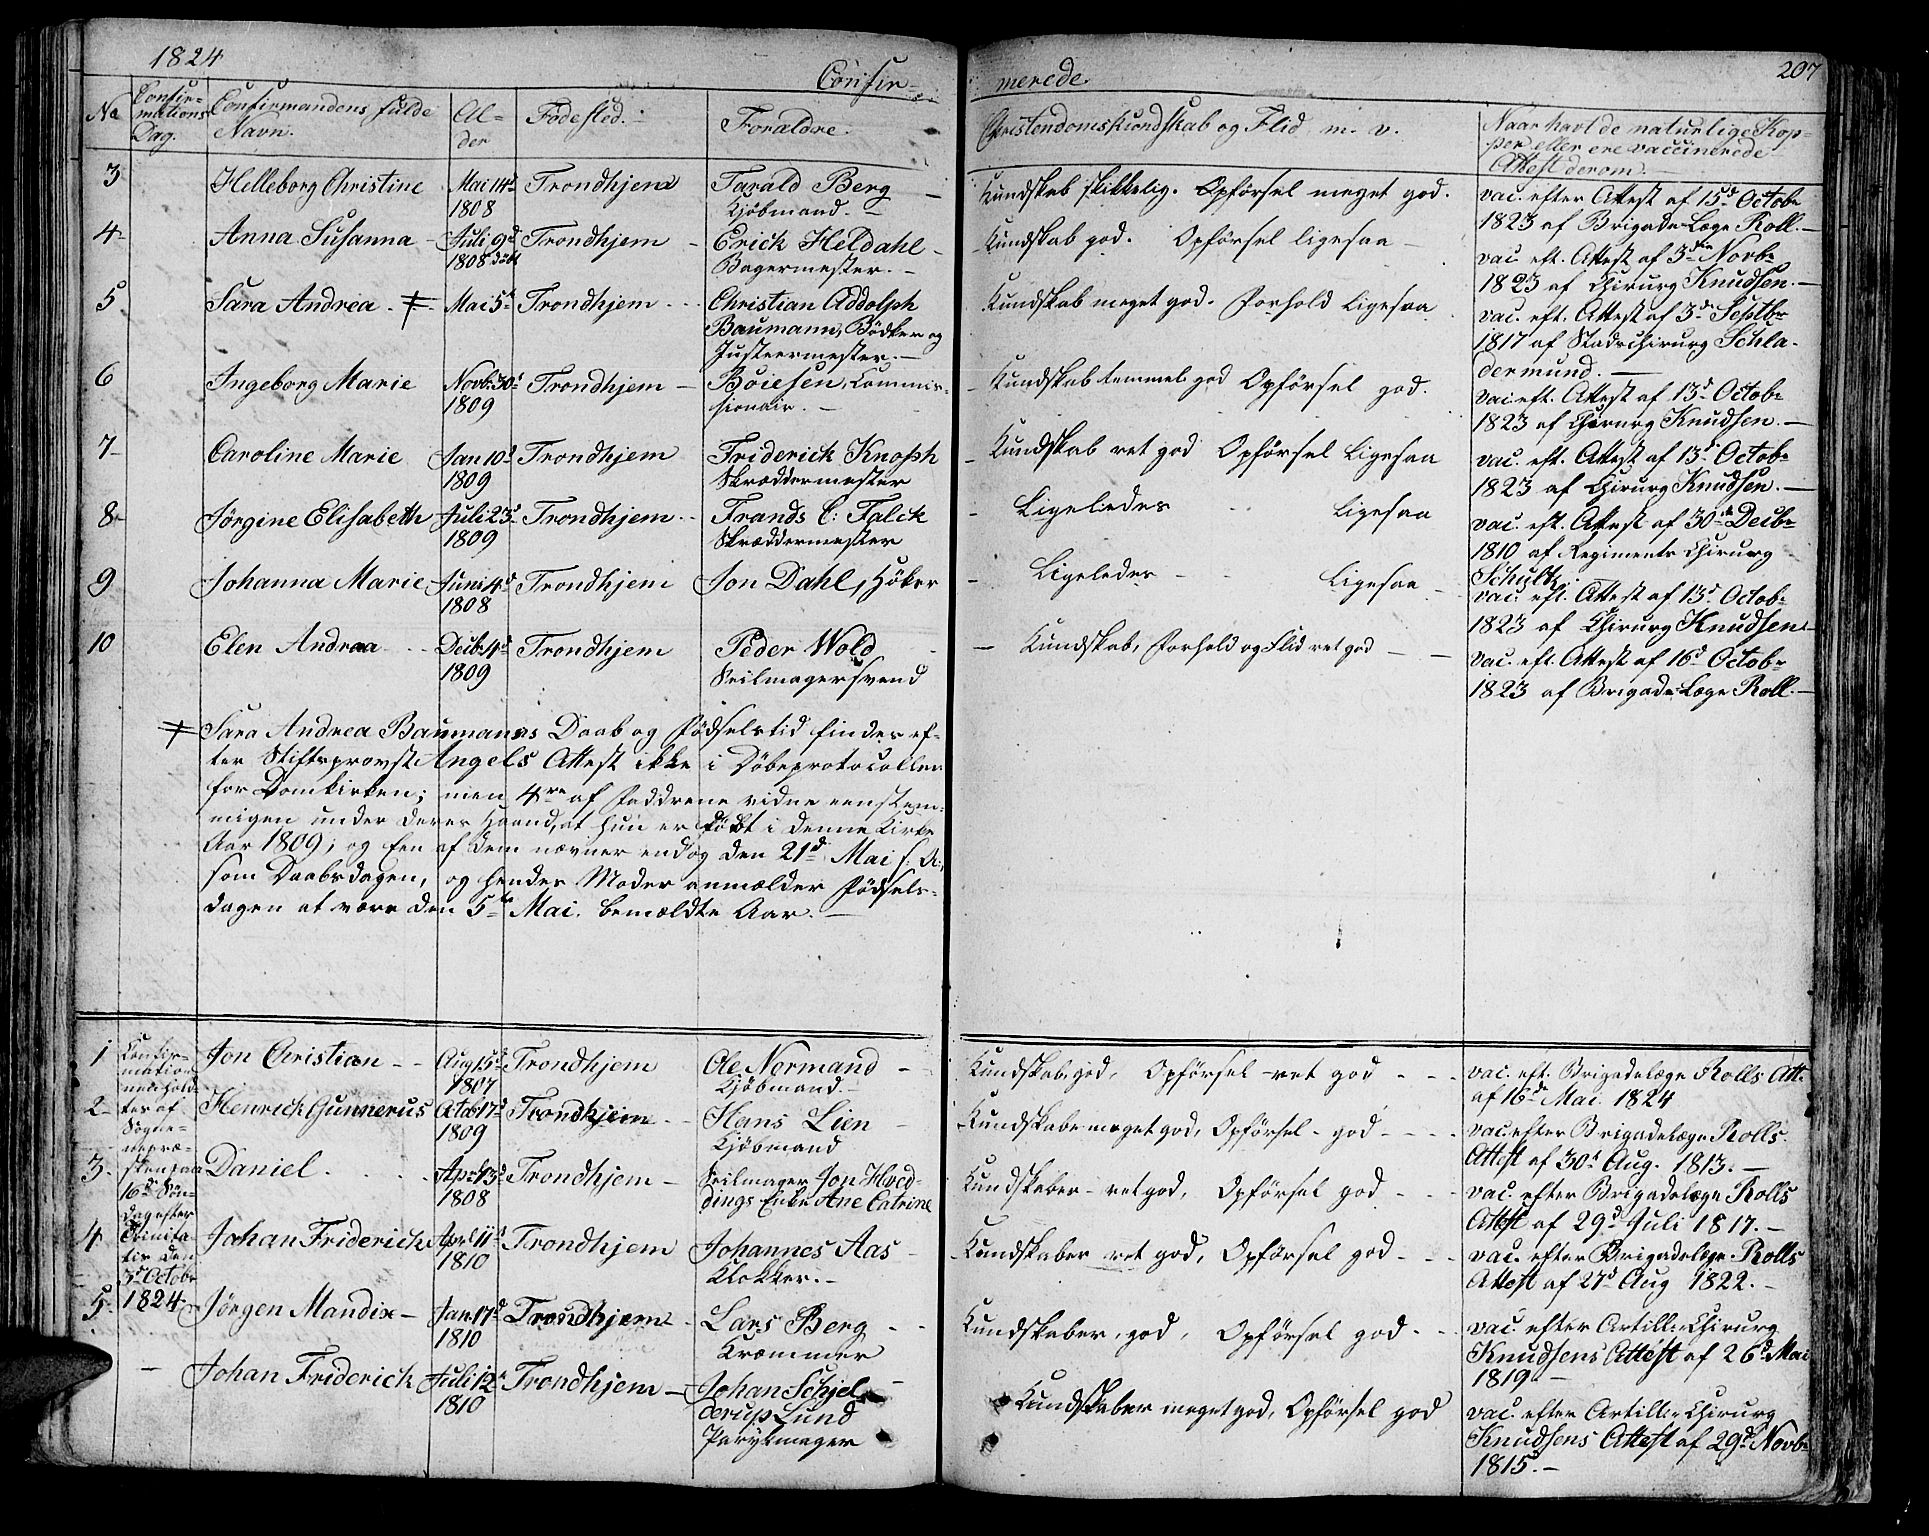 1824
Confir-
merede.
207
No
Confir-
mations
Dag.
Confirmandens fulde
Navn.
Al-
der
Fødested.
Forældre.
Christendomskundskab og Flid m. v.
Naar havt de naturlige Kop-
per eller ere vaccinerede
Attest derom.
3 Helleborg Christine Mai 14d Trondhjem Tarald Berg Kundskab skikkelig. Opførsel meget god. vac. efter Attest af 15d Octobr
1808 Kjøbmand. 1823 af Brigade-Læge Roll.
4 Anna Susanna Juli 9d Trondhjem Erick Heldahl Kundskab god. Opførsel ligesaa vac. eft. Attest af 3die Novbr
1808 døbt Bagermester. 1823 af Chirurg Knudsen.
5 Sara Andrea ≠ Mai 5te Trondhjem Christian Addolph Kundskab meget god. Forhold Ligesaa vac. eft. Attest af 3d Septbr
Baumann, Bødker og 1817 af Stadschirurg Schla-
Justeermester. dermund.
6 Ingeborg Marie Novbr 30d Trondhjem Böiesen, Commis- Kundskab temmel. god Opførsel god. vac. eft. Attest af 13d Octobr
1809 sionair. 1823 af Chirurg Knudsen.
7 Caroline Marie Jan 10d Trondhjem Friderick Knoph Kundskab ret god Opførsel Ligesaa vac. eft. Attest af 13d Octobr
1809 Skræddermester 1823 af Chirurg Knudsen.
8 Jørgine Elisabeth Juli 23d Trondhjem Frands C: Falck Ligeledes Ligesaa vac. eft. Attest af 30te Decbr
1809 Skræddermester 1810 af Regiments Chirurg
Schultz.
9 Johanna Marie Juni 4d Trondhjem Jon Dahl, Høker Ligeledes Ligesaa vac. eft. Attest af 13d Octobr
1808 1823 af Chirurg Knudsen
10 Elen Andrea Decbr 4d Trondhjem Peder Wold Kundskab, Forhold og Flid ret god vac. eft. Attest af 16d Octobr
1809 Seilmagersvend 1823 af Brigade-Læge Roll.
≠ Sara Andrea Baumanns Daab og Fødselstid findes ef-
ter Stiftsprovst Angels Attest ikke i Døbeprotocollen
for Domkirken; men 4re af Faddrene vidne eenstem-
migen under deres Haand, at hun er døbt i denne Kirke
Aar 1809; og Een af dem nævner endog den 21d Mai s. A.
som Daabsdagen, og hendes Moder anmælder Fødsels-
dagen at være den 5te Mai. bemældte Aar.
Confir-
mation
holdt
af
Sogne-
præ-
sten paa
16d Søn-
dag efter
Trinita-
tis den
3d Octobr
1824
1 Jon Christian Aug 15d Trondhjem Ole Normand Kundskab, god, Opførsel ret god vac. eft. Brigadelæge Rolls Att.
1807 Kjøbmand af 16d Mai 1824
2 Henrick Gunnerus Octob 17d Trondhjem Hans Lien Kundskaber meget god, Opførsel god vac. efter Brigadelæge Rolls
1809 Kjøbmand Attest af 30d Aug. 1813.
3 Daniel Apr. 13d Trondhjem Seilmager Jon Hved- Kundskaber ret god, Opførsel god vac. efter Brigadelæge Rolls
1808 dings Enke Ane Catrine Attest af 29d Juli 1817.
4 Johan Friderick Apr. 11d Trondhjem Johannes Aas Kundskaber ret god, Opførsel god vac. efter Brigadelæge Rolls
1810 Klokker. Attest af 27d Aug 1822.
5 Jørgen Mandix Jan. 17d Trondhjem Lars Berg Kundskaber, god, Opførsel god vac. efter Artill: Chirurg
1810 Kræmmer Knudsens Attest af 26d Mai
1819
Johan Friderick Juli 12d Trondhjem Johan Schjel- Kundskaber meget god, Opførsel god vac. efter Artill: Chirurg
1810 derup Lund Knudsens Attest af 29d Novbr
Parykmager 1815.